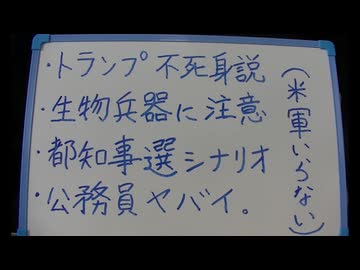 ・トランプ不死身説
・生物兵器に注意
・都知事選シナリオ
・公務員ヤバイ。
(米軍いらない)